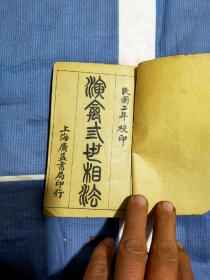 民國二年校印
演禽三世相法
上海廣益書局印行